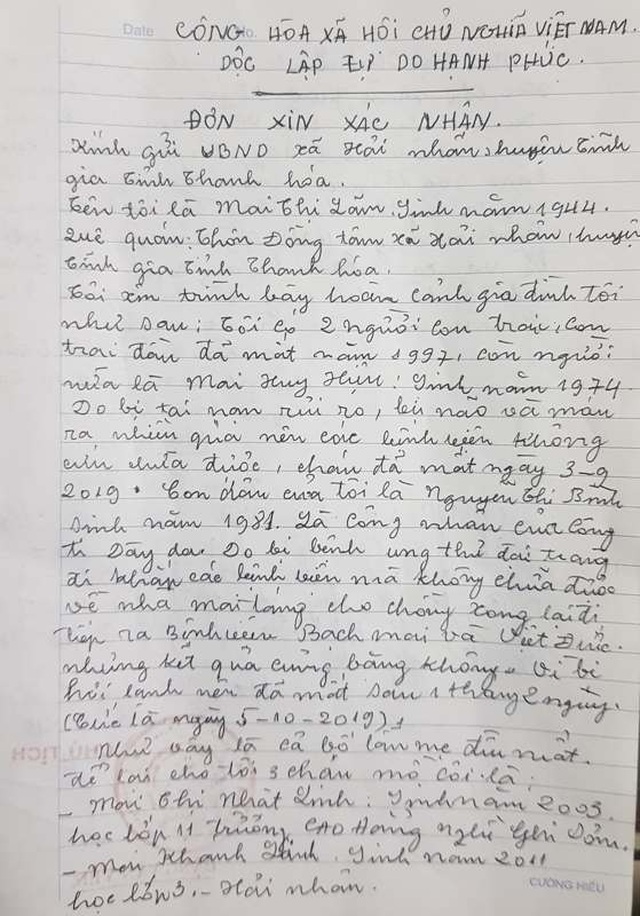 Date No.
CÔNG HÒA XÃ HÔI CHỦ NGHĨA VIỆT NAM.
DỘC LẬP TỰ DO HẠNH PHÚC.
ĐƠN XIN XÁC NHẬN.
Kính gửi UBND xã Hải nhân, huyện Tĩnh
gia tỉnh Thanh hóa.
Tên tôi là Mai Thị Lãm, Sinh năm 1944.
Quê quán: Thôn Đồng tâm xã Hải nhân, huyện
Tĩnh gia Tỉnh Thanh hóa.
Tôi xin trình bày hoàn cảnh gia đình tôi
như sau: Tôi có 2 người con trai, con
trai đầu đã mất năm 1997, còn người
nữa là Mai Huy Hiệu: Sinh năm 1974
Do bị tai nạn rủi ro, bị não và máu
ra nhiều quá nên các bệnh viện không
cứu chữa được, cháu đã mất ngày 3-9
2019. Con dâu của tôi là Nguyễn Thị Bình
sinh năm 1981. Là công nhân của Công
ti Dày da. Do bị bệnh ung thư đại tràng
đi khắp các bệnh viện mà không chữa được
về nhà mai táng cho chồng xong lại đi
tiếp ra Bệnh viện Bạch mai và Việt Đức.
nhưng kết quả cũng bằng không. Vì bị
hơi lạnh nên đã mất sau 1 tháng 2 ngày.
(Tức là ngày 5-10-2019),
Như vậy là cả bố lẫn mẹ đều mất.
để lại cho tôi 3 cháu mồ côi là:
- Mai Thị Nhật Linh: Sinh năm 2003.
học lớp 11 Trường CAO Hoàng nghề Ghi Sơn.
- Mai Khanh Linh. Sinh năm 2011
học lớp 3. - Hải nhân.
CƯỜNG HIẾU